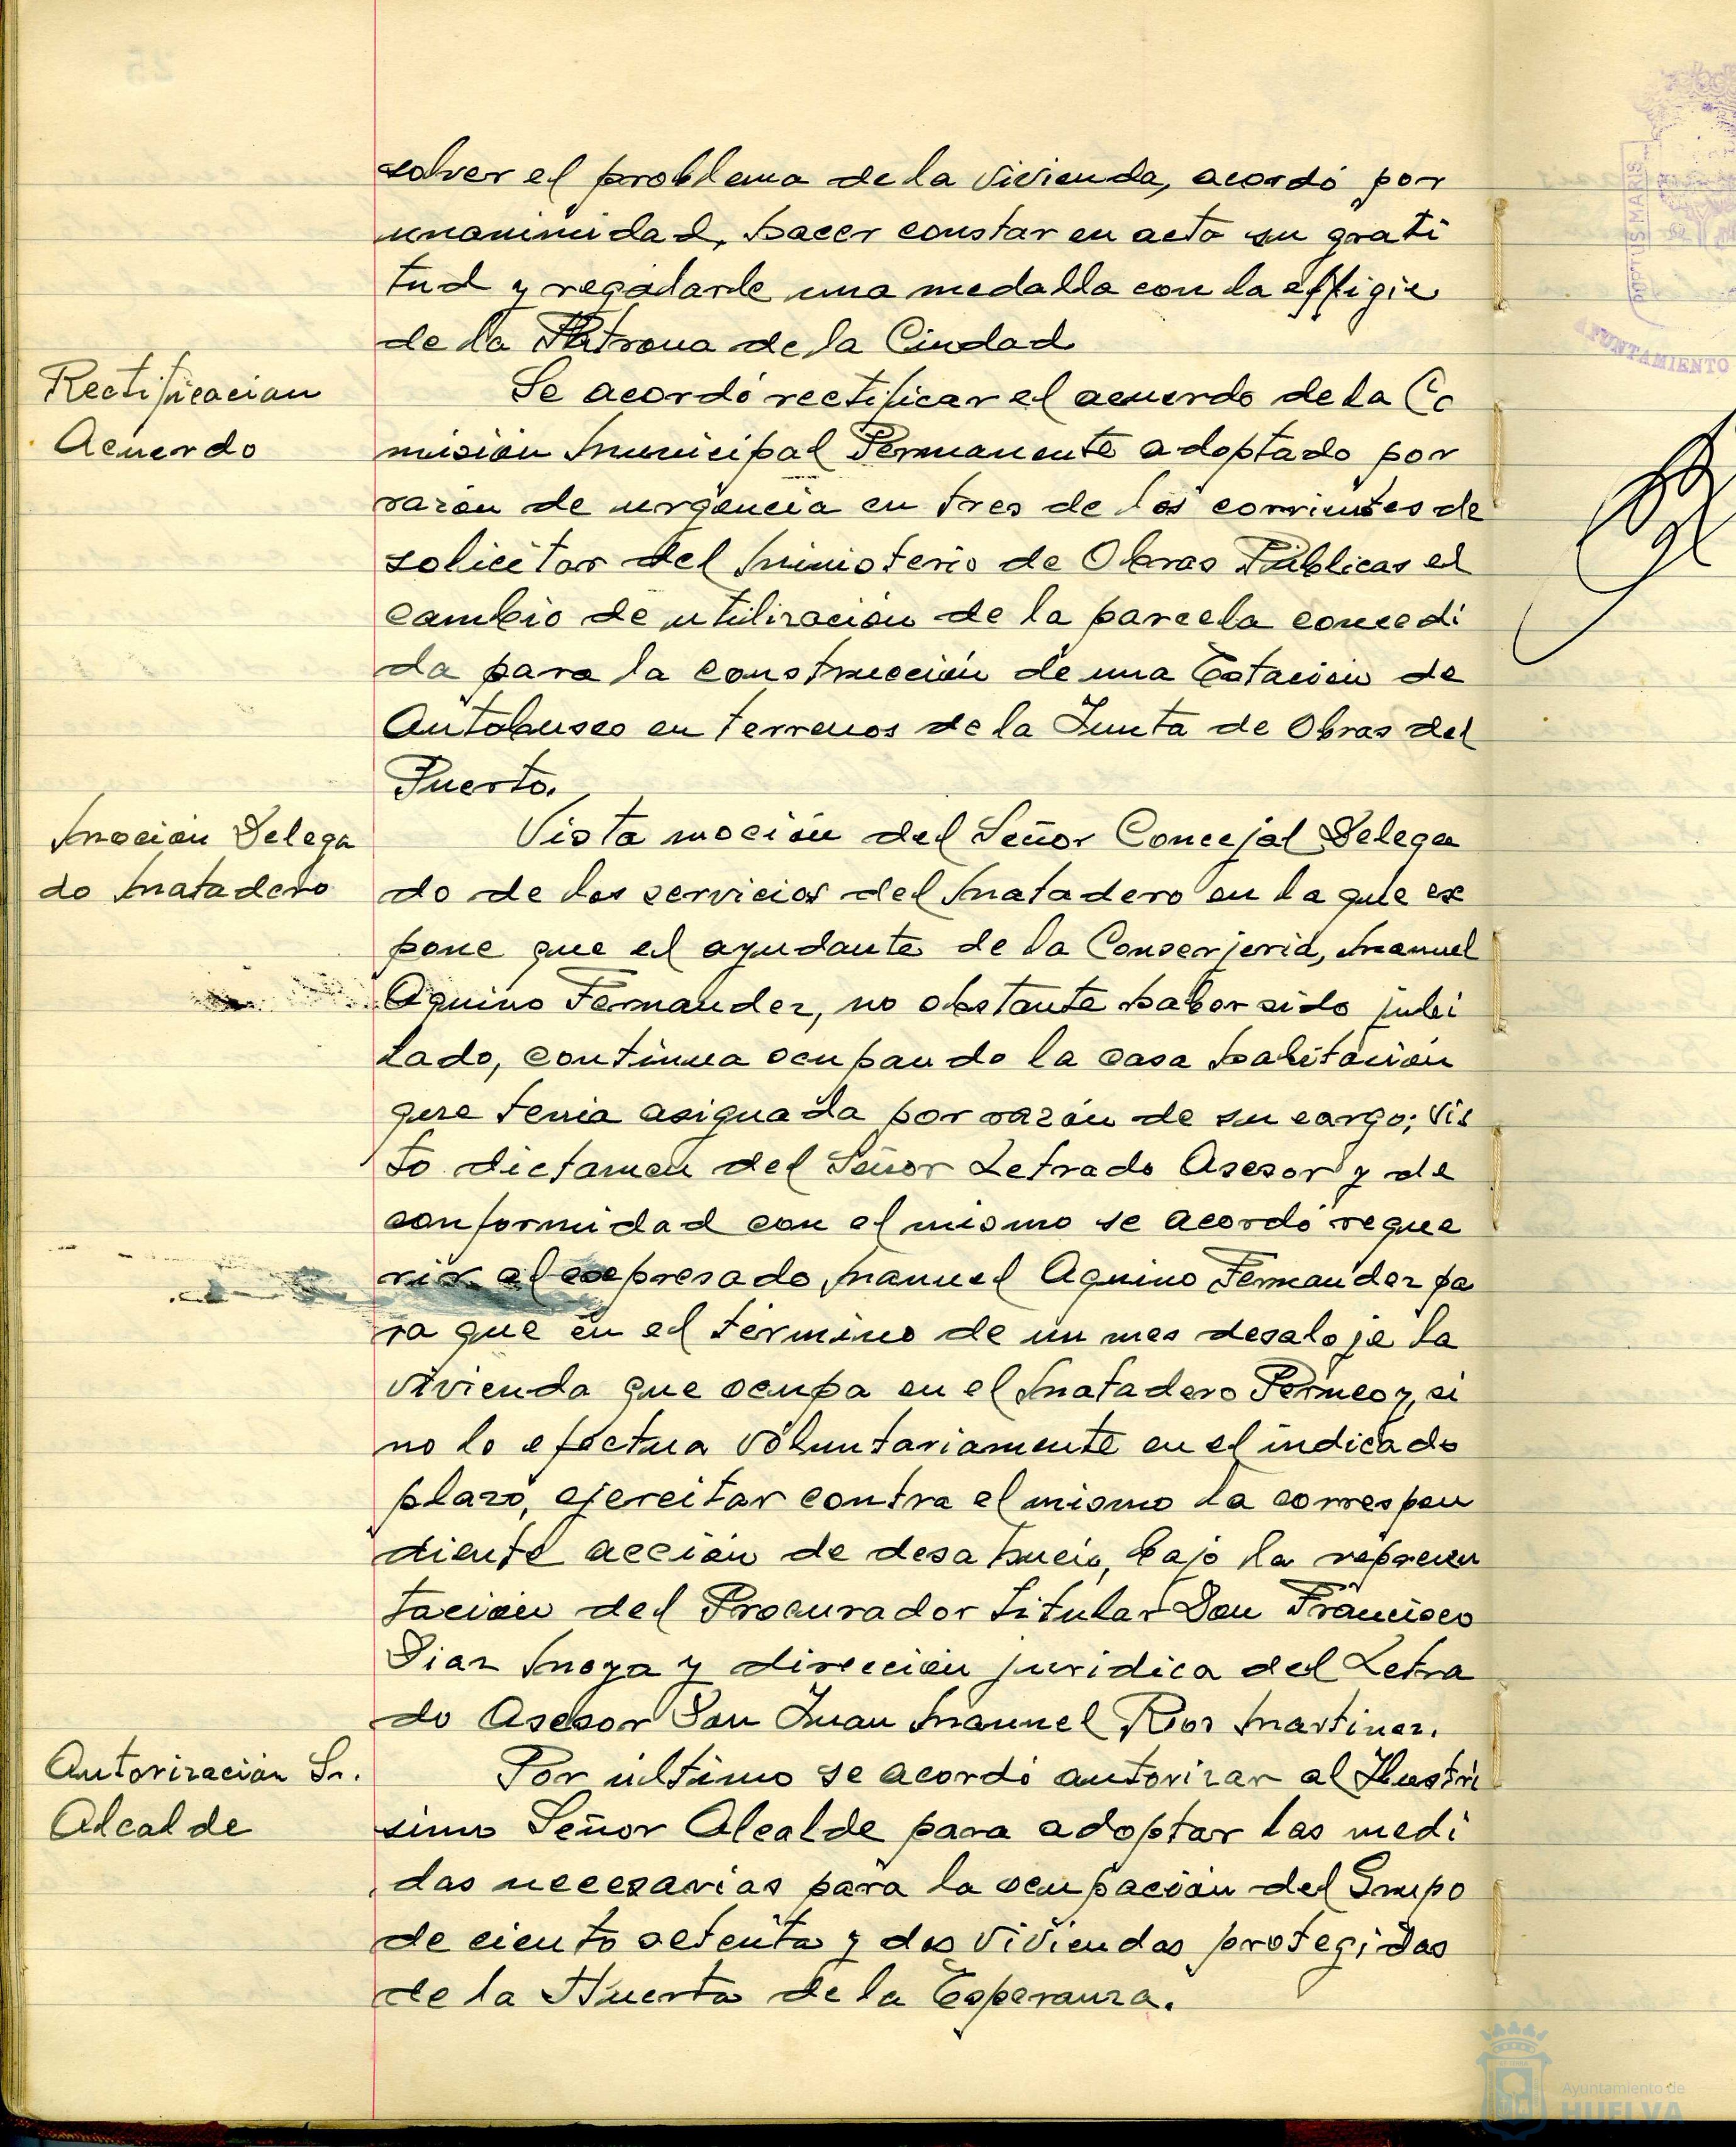 solver el problema de la vivienda, acordó por
unanimidad, hacer constar en acta su grati
tud y regalarle una medalla con la effigie
de la Patrona de la Ciudad
Rectificacion
Acuerdo
Se acordó rectificar el acuerdo de la Co
misión Municipal Permanente adoptado por
razón de urgencia en tres de los corrientes de
solicitar del Ministerio de Obras Públicas el
cambio de utilización de la parcela concedi
da para la construcción de una Estación de
Autobuses en terrenos de la Junta de Obras del
Puerto.
Moción Delega
do Matadero
Vista moción del Señor Concejal Delega
do de los servicios del Matadero en la que ex
pone que el ayudante de la Conserjeria, Manuel
Aquino Fernandez, no obstante haber sido jubi
lado, continua ocupando la casa habitación
que tenia asignada por razón de su cargo; vis
to dictamen del Señor Letrado Asesor y de
conformidad con el mismo se acordó reque
rir al expresado Manuel Aquino Fernandez pa
ra que en el término de un mes desaloje la
vivienda que ocupa en el Matadero y, si
no lo efectua voluntariamente en el indicado
plazo, ejercitar contra el mismo la correspon
diente acción de desahucio, bajo la represen
tación del Procurador titular Don Francisco
Diaz Moya y dirección juridica del Letra
do Asesor Don Juan Manuel Rios Martinez.
Autorización Sr.
Alcalde
Por último se acordó autorizar al Ilustri
simo Señor Alcalde para adoptar las medi
das necesarias para la ocupación del Grupo
de ciento setenta y dos viviendas protegidas
de la Huerta de la Esperanza.
AYUNTAMIENTO
Ayuntamiento de
HUELVA